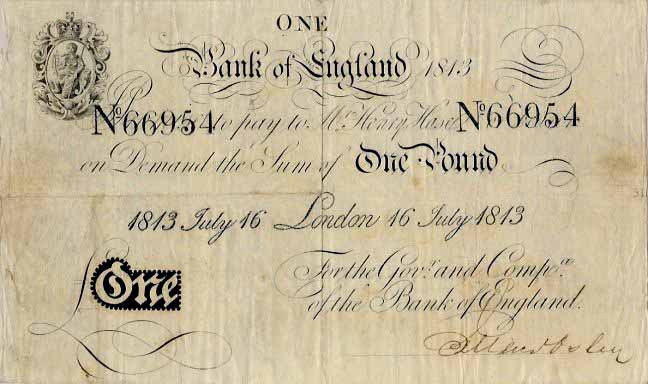 ONE
Bank of England 1813
Nº66954 to pay to Mr. Henry Hase Nº66954
on Demand the Sum of One Pound
1813 July 16 London 16 July 1813
For the Govr. and Compa. of the Bank of England.
£One